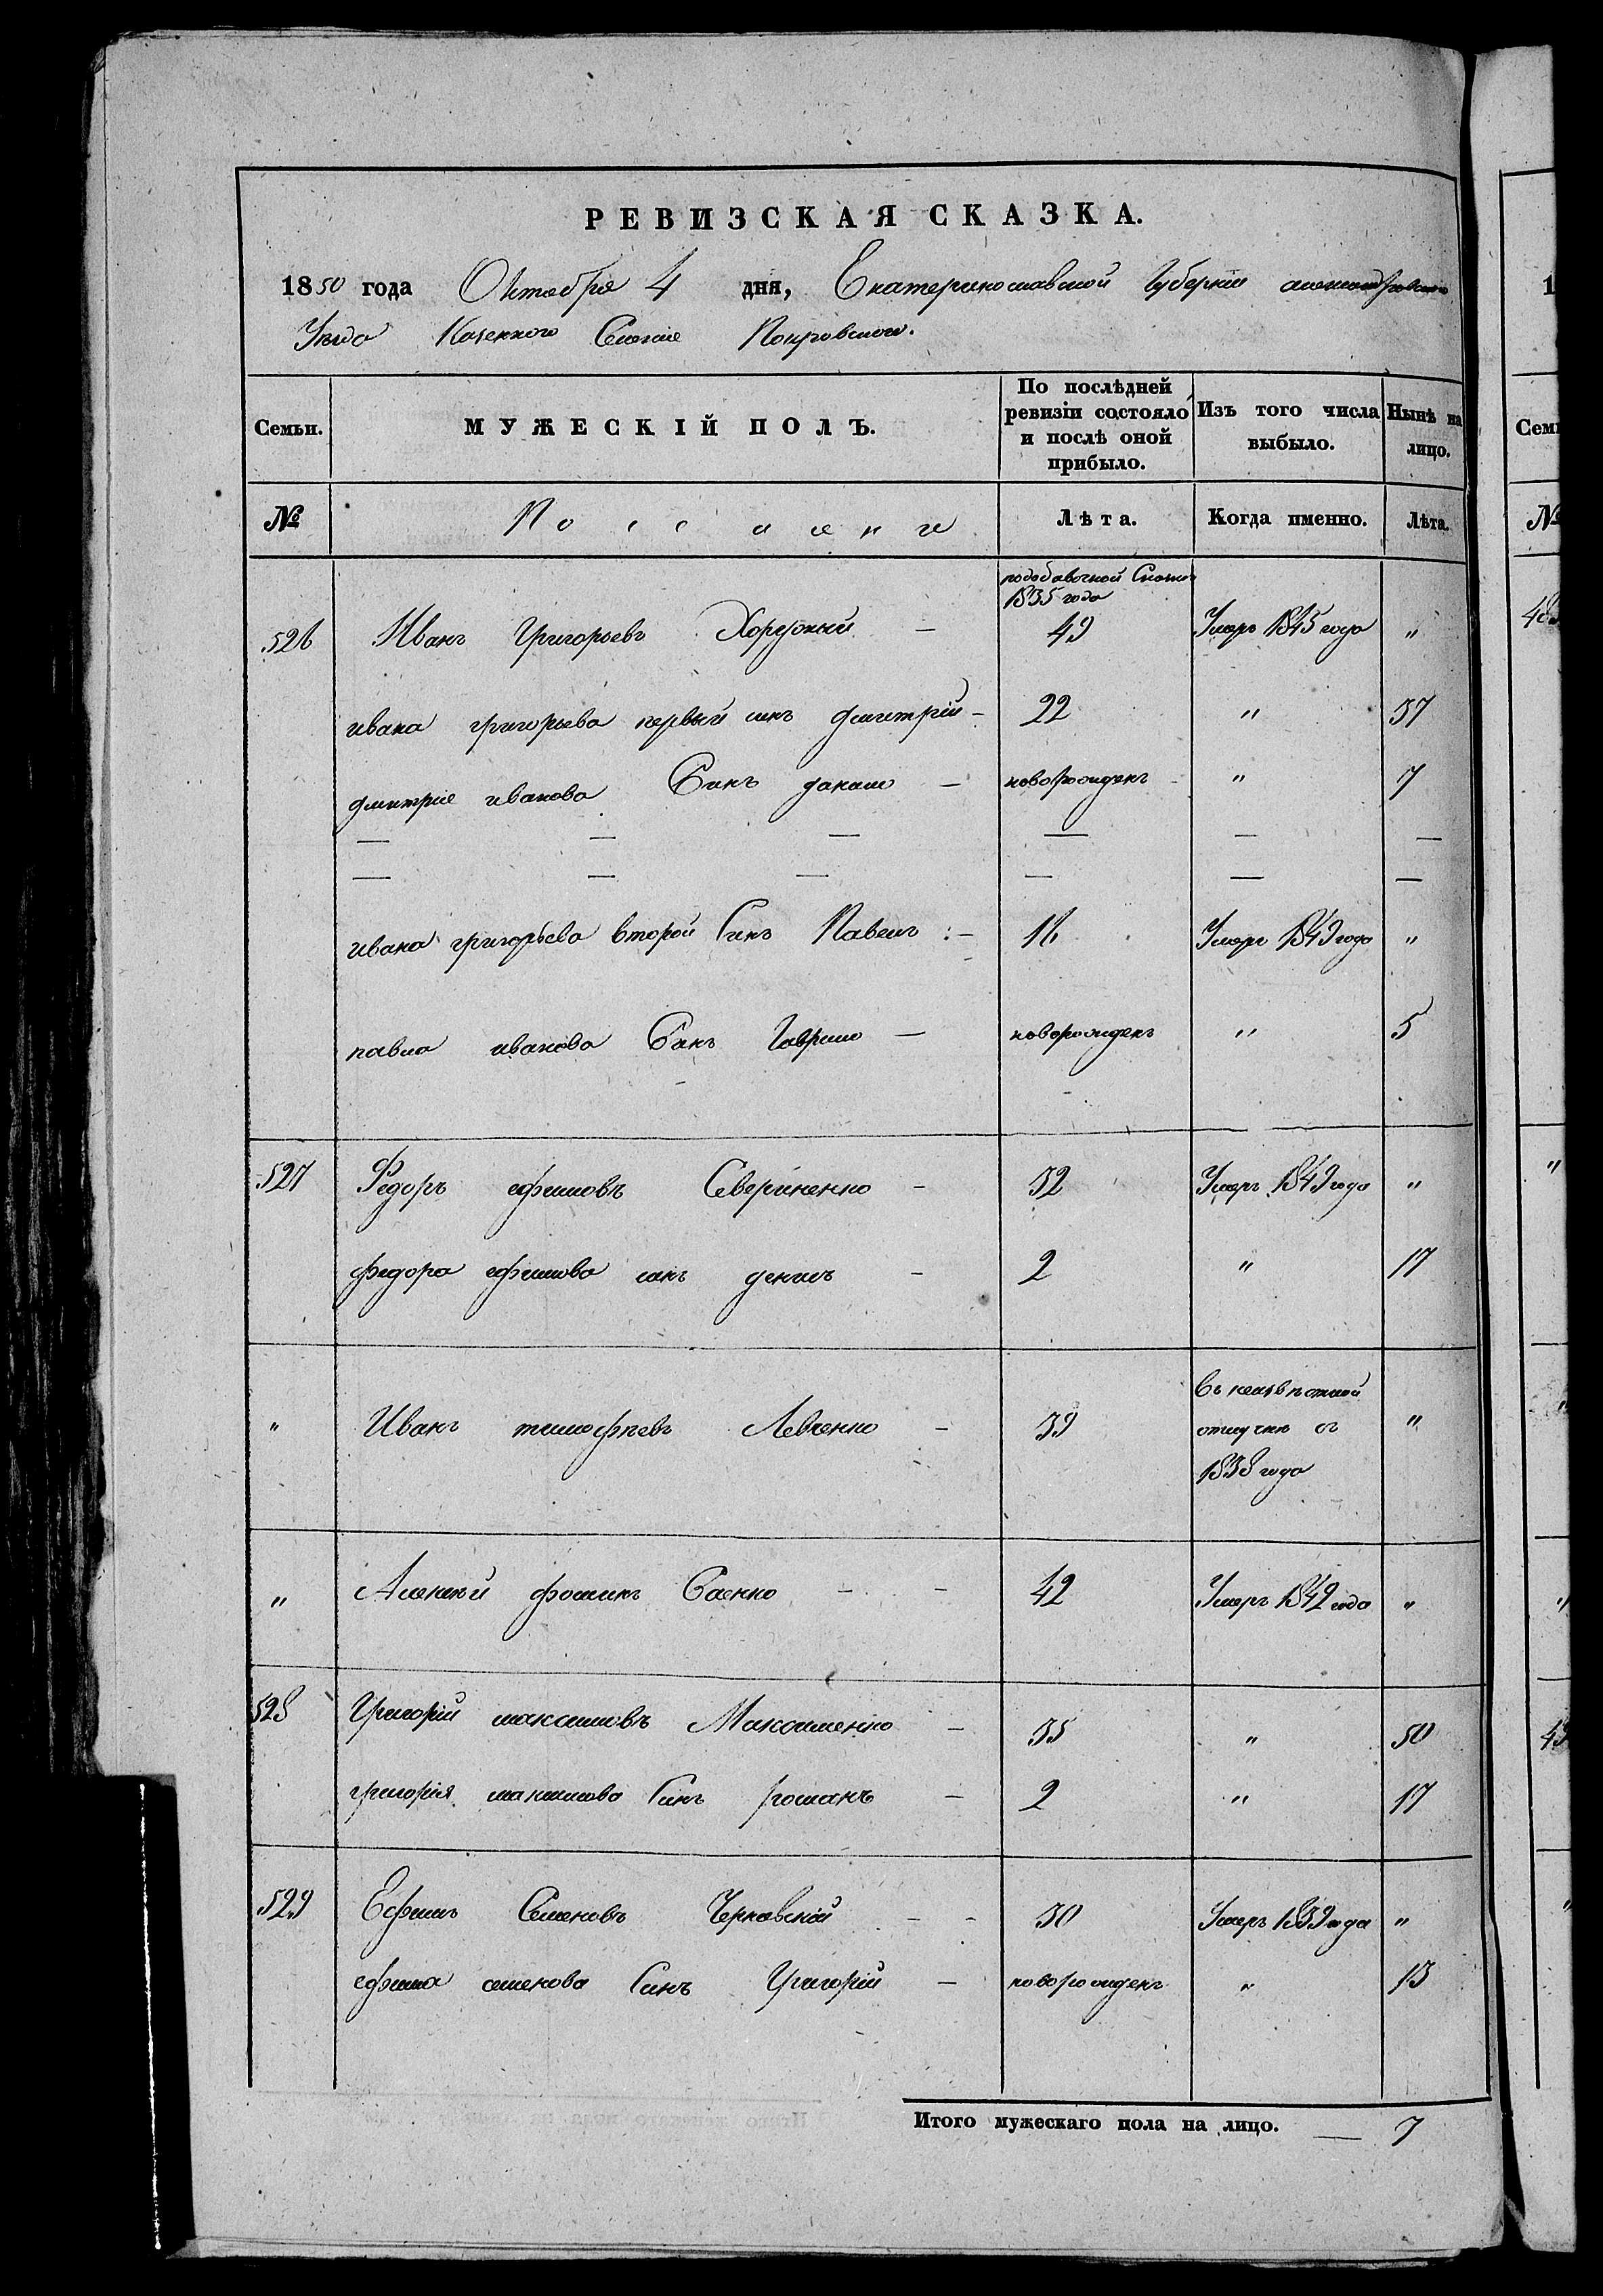 РЕВИЗСКАЯ СКАЗКА.
1850 года Октября 4 дня, Екатеринославской Губернии александровского
Уезда Казенного Селение Покровского.
Семьи. МУЖЕСКІЙ ПОЛЪ. По послѣдней ревизіи состояло и послѣ оной прибыло. Изъ того числа выбыло. Нынѣ на лицо.
№ Лѣта. Когда именно. Лѣта.
подобавочной Сказки
1835 года
526 Иванъ Григорьевъ Хоружый — 49 Умеръ 1845 года "
ивана григорьева первый синъ дмитрій — 22 " 37
дмитрие иванова Синъ данило — новорожденъ " 7
— — — — — —
— — — — — —
ивана григорьева второй Синъ Павелъ :— 16 Умеръ 1849 года "
павла иванова Синъ Гаврило — новорожденъ " 5
527 Федоръ ефимовъ Севериненко — 32 Умеръ 1849 года "
федора ефимова синъ денисъ — 2 " 17
" Иванъ тимофѣевъ Левченко — 39 въ неизвѣстной
отлучке съ "
1838 года
" Алексѣй фоминъ Саенко — — 42 Умеръ 1842 года "
528 Григорій максимовъ Максименко — 35 " 50
григорія максимова Синъ романъ — 2 " 17
529 Ефимъ Семеновъ Чернавскій — — 30 Умеръ 1839 года "
ефима семенова Синъ Григорій — новорожденъ " 13
Итого мужескаго пола на лицо. — 7
1
Сем
№
"
"
"
"